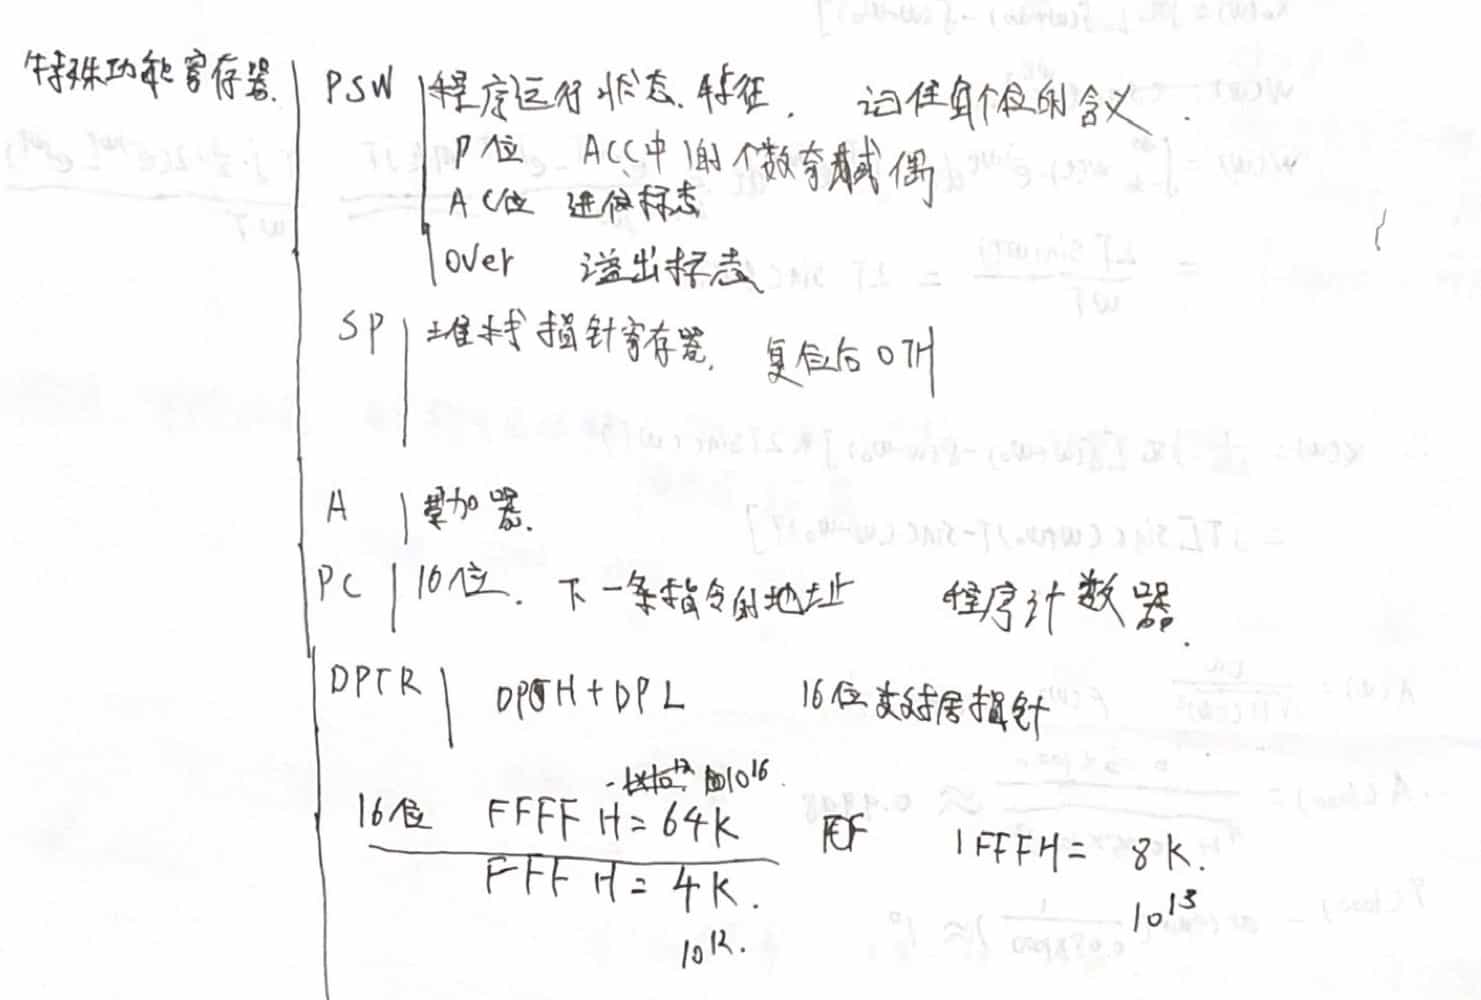 特殊功能寄存器.
PSW 程序运行状态.特征. 记住每个位的含义.
P位 ACC中1的个数奇或偶
AC位 进位标志
Over 溢出标志
SP 堆栈指针寄存器. 复位后07H
A 累加器.
PC 16位. 下一条指令的地址 程序计数器.
DPTR DPH+DPL 16位数据指针
10^16.
16位 FFFF H=64K 1FFFH= 8K.
FFF H=4K. 10^13
10^12.